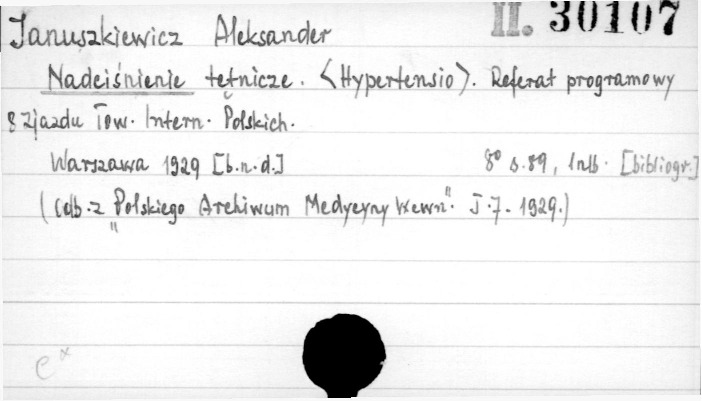 Januszkiewicz Aleksander II. 30107
Nadciśnienie tętnicze. <Hypertensio>. Referat programowy
8 Zjazdu Tow. Intern. Polskich.
Warszawa 1929 [b.n.d.] 8° s.89, 1nlb. [bibliogr.]
(Odb. z "Polskiego Archiwum Medycyny Wewn". T.7. 1929.)
C x